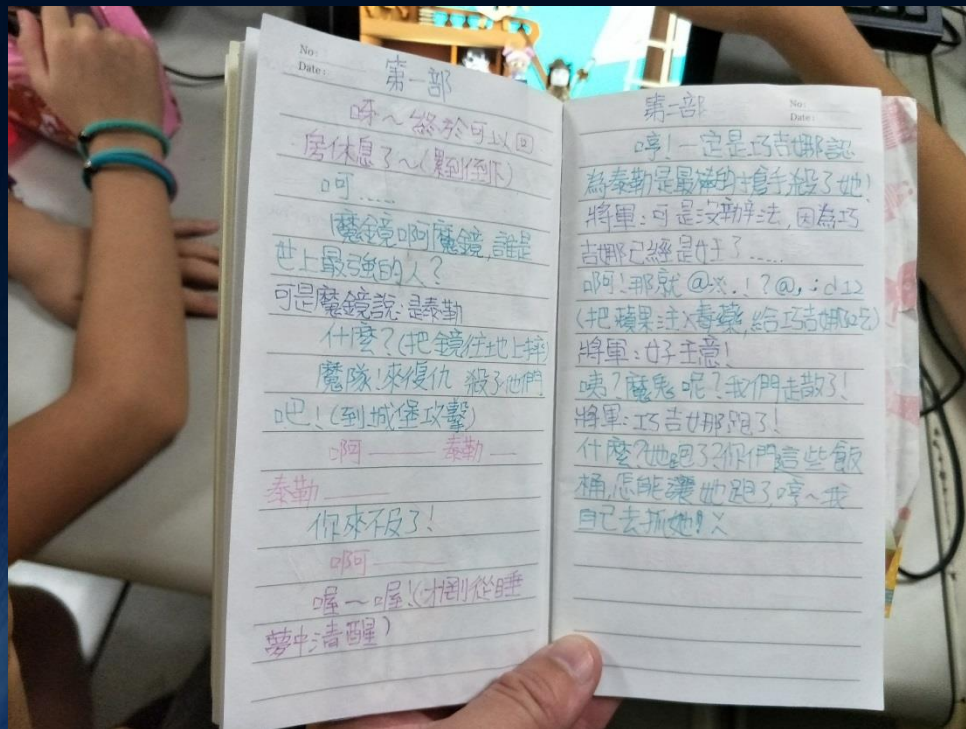 No:
Date:
第一部
呀～終於可以回
房休息了～(累到倒下)
呵……
魔鏡啊魔鏡,誰是
世上最強的人？
可是魔鏡說:是泰勒
什麼？(把鏡往地上摔)
魔隊!來復仇 殺了他們
吧！(到城堡攻擊)
啊——— 泰勒—
泰勒———
你來不及了！
啊———
喔～喔！(剛從睡
夢中清醒)
第一部
No:
Date:
哼！一定是巧吉娜認
為泰勒是最棒的槍手,殺了她！
將軍:可是沒辦法,因為巧
吉娜已經是女王了……
啊！那就@※.！？@,:d12
(把蘋果注入毒藥,給巧吉娜吃)
將軍:好主意！
咦？魔鬼呢？我們走散了！
將軍:巧吉娜跑了！
什麼？她跑了？你們這些飯
桶,怎能讓她跑了,哼～我
自己去抓她！